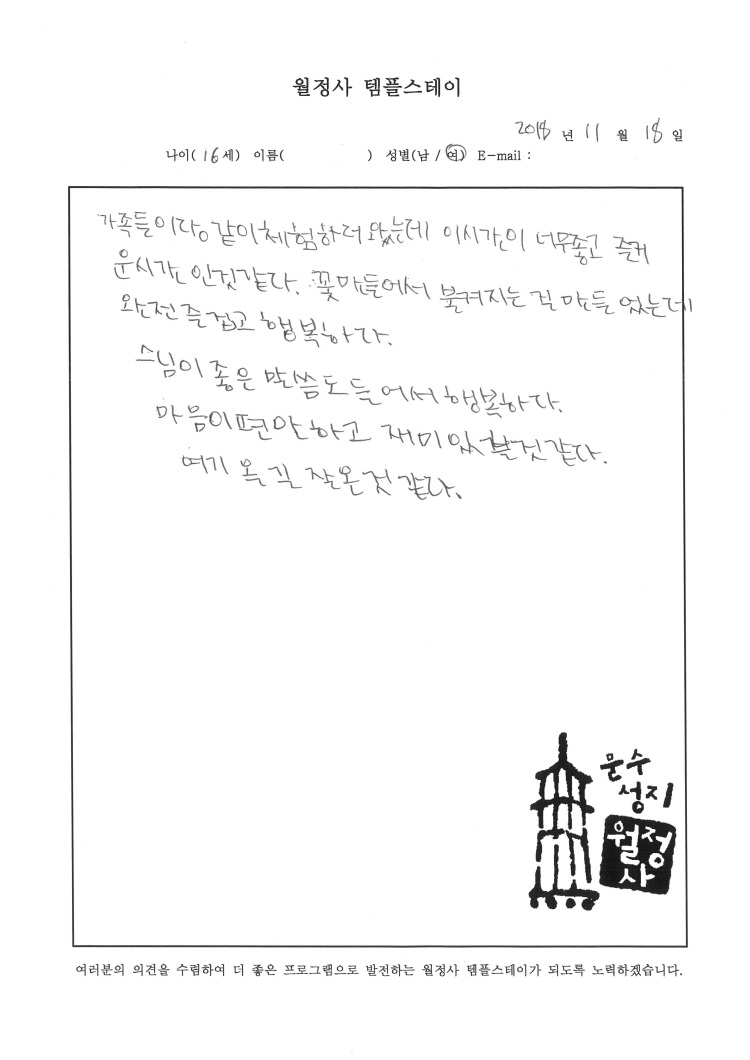 월정사 템플스테이
2018 년 11 월 18 일
나이( 16 세) 이름( ) 성별(남 / 여) E-mail :
가족들이랑 같이 체험하러 왔는데 이시간이 너무좋고 즐거
운시간 인것같다. 꽃만들어서 불켜지는 걸 만들었는데
완전 즐겁고 행복하다.
스님이 좋은 말씀도 들어서 행복하다.
마음이 편안하고 재미있 것 같다.
여기 오길 잘온것 같다.
문수
성지
월정
사
여러분의 의견을 수렴하여 더 좋은 프로그램으로 발전하는 월정사 템플스테이가 되도록 노력하겠습니다.